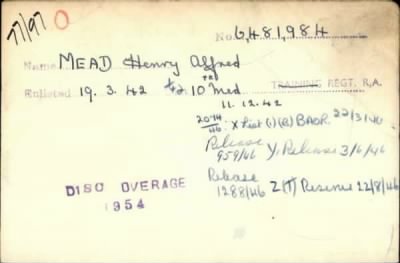 77/97 O
No. 6,481,984
Name MEAD Henry Alfred
Enlisted 19. 3. 42 10 Med TRAINING REGT. R.A.
11. 12. 42
2074/46. X List (i) (R) BAOR. 22/3/46
Release
959/46 Y. Release 3/6/46
Release
1288/46 Z (T) Reserve 22/8/46
DISC OVERAGE
1954